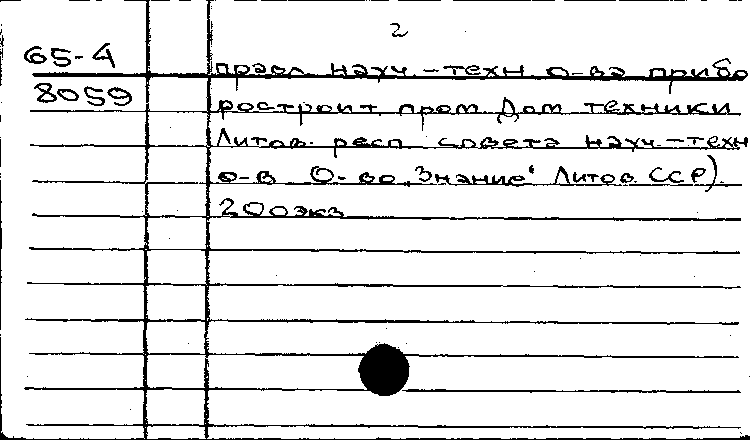 2
65-4
8059
правл науч.-техн о-ва прибо
ростроит пром Дом техники
Литов. респ совета науч.-техн
о-в О-во „Знание“ Литов. ССР).
200экз